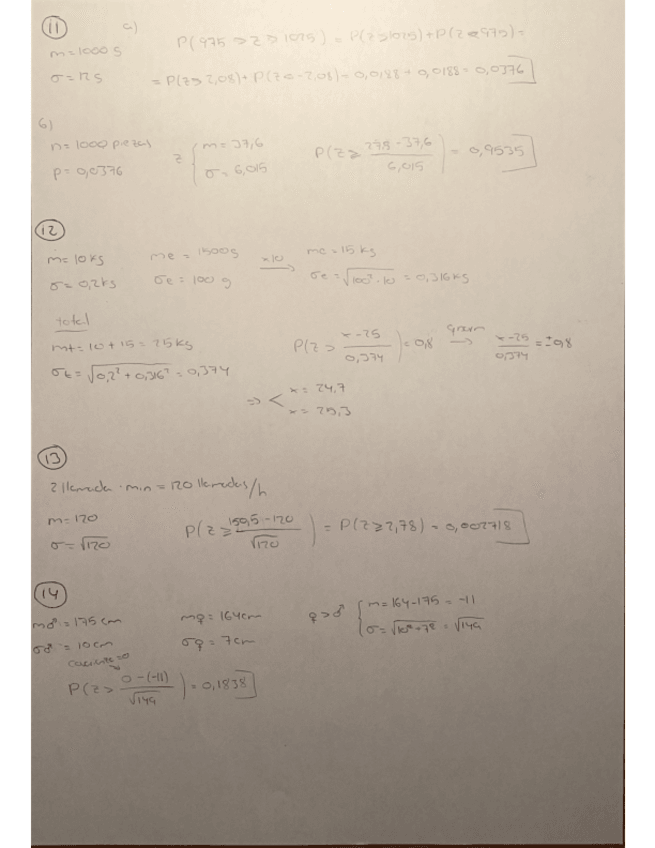 11 a)
m = 1000 g P(975 > Z > 1025) = P(Z > 1025) + P(Z < 975) =
σ = 12 g = P(Z > 2,08) + P(Z < -2,08) = 0,0188 + 0,0188 = 0,0376
b)
n = 1000 piezas z { m = 37,6 P(Z ≥ (27,8 - 37,6)/6,015) = 0,9535
p = 0,0376 σ = 6,015
12
m = 10 kg me = 1500 g x10 → mc = 15 kg
σ = 0,2 kg σe = 100 g σc = √(100² · 10) = 0,316 kg
total
mt = 10 + 15 = 25 kg P(Z > (x - 25)/0,374) = 0,8 → (x - 25)/0,374 = ±0,8
σt = √(0,2² + 0,316²) = 0,374
⇒ < x = 24,7
x = 25,3
13
2 llamada · min = 120 llamadas/h
m = 120 P(Z ≥ (150,5 - 120)/√120) = P(Z ≥ 2,78) = 0,002718
σ = √120
14
m♂ = 175 cm m♀ = 164 cm ♀ > ♂ { m = 164 - 175 = -11
σ♂ = 10 cm σ♀ = 7 cm σ = √(10² + 7²) = √149
P(Z > (0 - (-11))/√149) = 0,1838